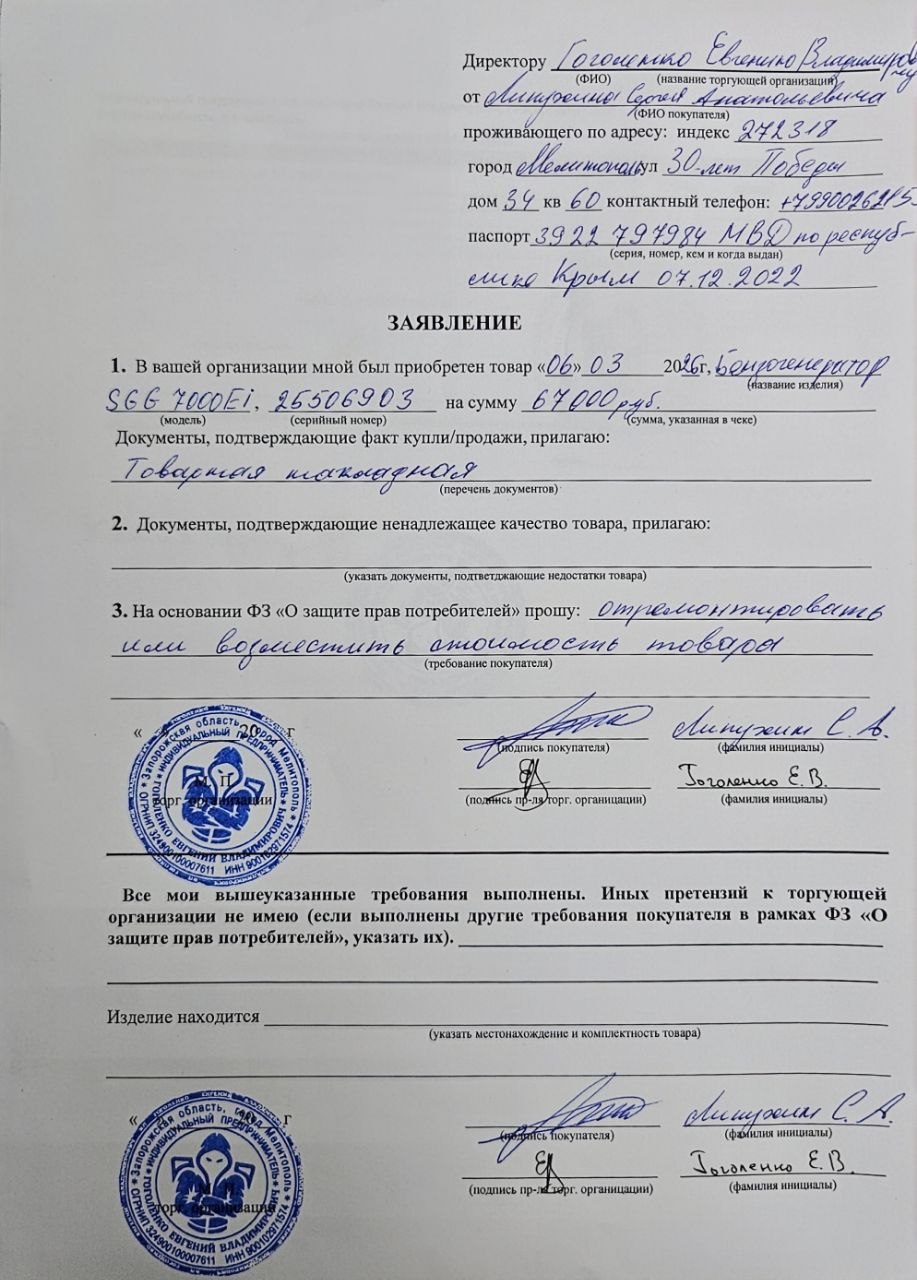 Директору Гоголенко Евгению Владимирови
чу
(ФИО) (название торгующей организации)
от Липухина Сергея Анатольевича
(ФИО покупателя)
проживающего по адресу: индекс 272318
город Мелитополь ул 30-лет Победы
дом 34 кв 60 контактный телефон:
паспорт 3922 797984 МВД по респуб-
(серия, номер, кем и когда выдан)
лике Крым 07.12.2022
ЗАЯВЛЕНИЕ
1. В вашей организации мной был приобретен товар «06» 03 2026г, Бензогенератор
(название изделия)
SGG 7000Ei, 25506903 на сумму 67000 руб.
(модель) (серийный номер) (сумма, указанная в чеке)
Документы, подтверждающие факт купли/продажи, прилагаю:
Товарная накладная
(перечень документов)
2. Документы, подтверждающие ненадлежащее качество товара, прилагаю:
(указать документы, подтветджающие недостатки товара)
3. На основании ФЗ «О защите прав потребителей» прошу: отремонтировать
или возместить стоимость товара
(требование покупателя)
« 20 г Липухин С. А.
(подпись покупателя) (фамилия инициалы)
М П Гоголенко Е. В.
торг. организации (подпись пр-ля торг. органицации) (фамилия инициалы)
Запорожская область, город Мелитополь
ИНДИВИДУАЛЬНЫЙ ПРЕДПРИНИМАТЕЛЬ
ГОГОЛЕНКО ЕВГЕНИЙ ВЛАДИМИРОВИЧ
ОГРНИП 324900100007611 ИНН 900102971574
Все мои вышеуказанные требования выполнены. Иных претензий к торгующей
организации не имею (если выполнены другие требования покупателя в рамках ФЗ «О
защите прав потребителей», указать их).
Изделие находится
(указать местонахождение и комплектность товара)
« г Липухин С. А.
(подпись покупателя) (фамилия инициалы)
М П Гоголенко Е. В.
торг. организации (подпись пр-ля торг. органицации) (фамилия инициалы)
Запорожская область, город Мелитополь
ИНДИВИДУАЛЬНЫЙ ПРЕДПРИНИМАТЕЛЬ
ГОГОЛЕНКО ЕВГЕНИЙ ВЛАДИМИРОВИЧ
ОГРНИП 324900100007611 ИНН 900102971574